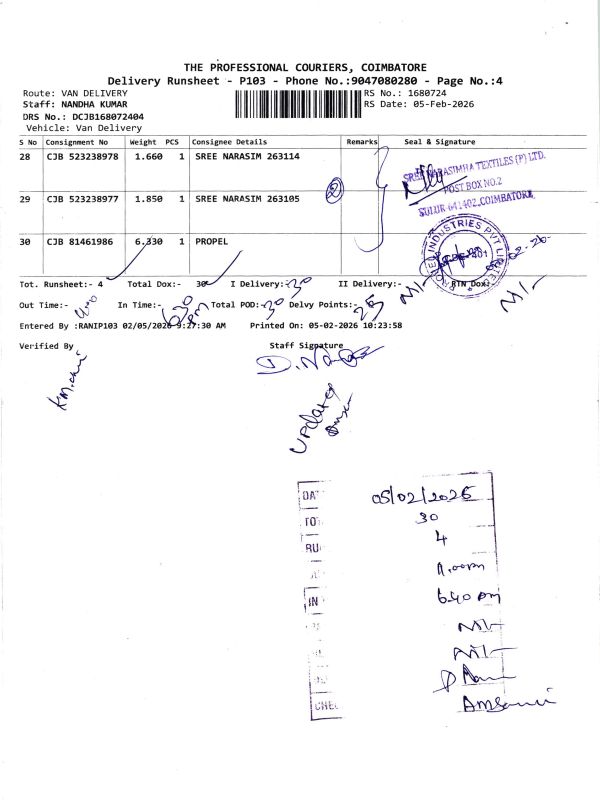 THE PROFESSIONAL COURIERS, COIMBATORE
Delivery Runsheet - P103 - Phone No.:9047080280 - Page No.:4
Route: VAN DELIVERY RS No.: 1680724
Staff: NANDHA KUMAR RS Date: 05-Feb-2026
DRS No.: DCJB168072404
Vehicle: Van Delivery
S No Consignment No Weight PCS Consignee Details Remarks Seal & Signature
28 CJB 523238978 1.660 1 SREE NARASIM 263114
SREE NARASIMHA TEXTILES (P) LTD.
POST BOX NO.2
SULUR-641402, COIMBATORE
29 CJB 523238977 1.850 1 SREE NARASIM 263105
30 CJB 81461986 6.330 1 PROPEL
PROPEL INDUSTRIES PVT LIMITED
Tot. Runsheet:- 4 Total Dox:- 30 I Delivery:- 30 II Delivery:- RTN Dox:
Out Time:- In Time:- 6.30 pm Total POD:- 30 Delvy Points:- 25
Entered By :RANIP103 02/05/2026 9:27:30 AM Printed On: 05-02-2026 10:23:58
Verified By Staff Signature
updated
05/02/2026
30
RU 4
IN 6.40 pm
Nil
Nil